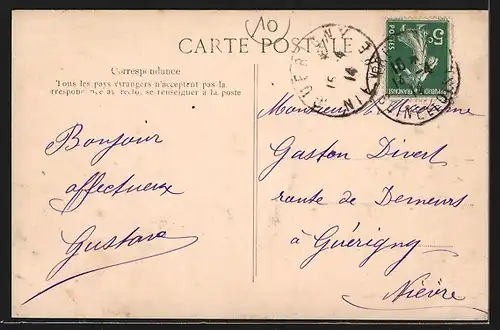 (10)
CARTE POSTALE
Correspondance
Tous les pays étrangers n'acceptent pas la
correspondance au recto, se renseigner à la poste
5c
POSTES
REPUBLIQUE FRANÇAISE
Bonjour
affectueux
Gustave
Monsieur Madame
Gaston Divert
route de Demeurs
à Guérigny
Nièvre